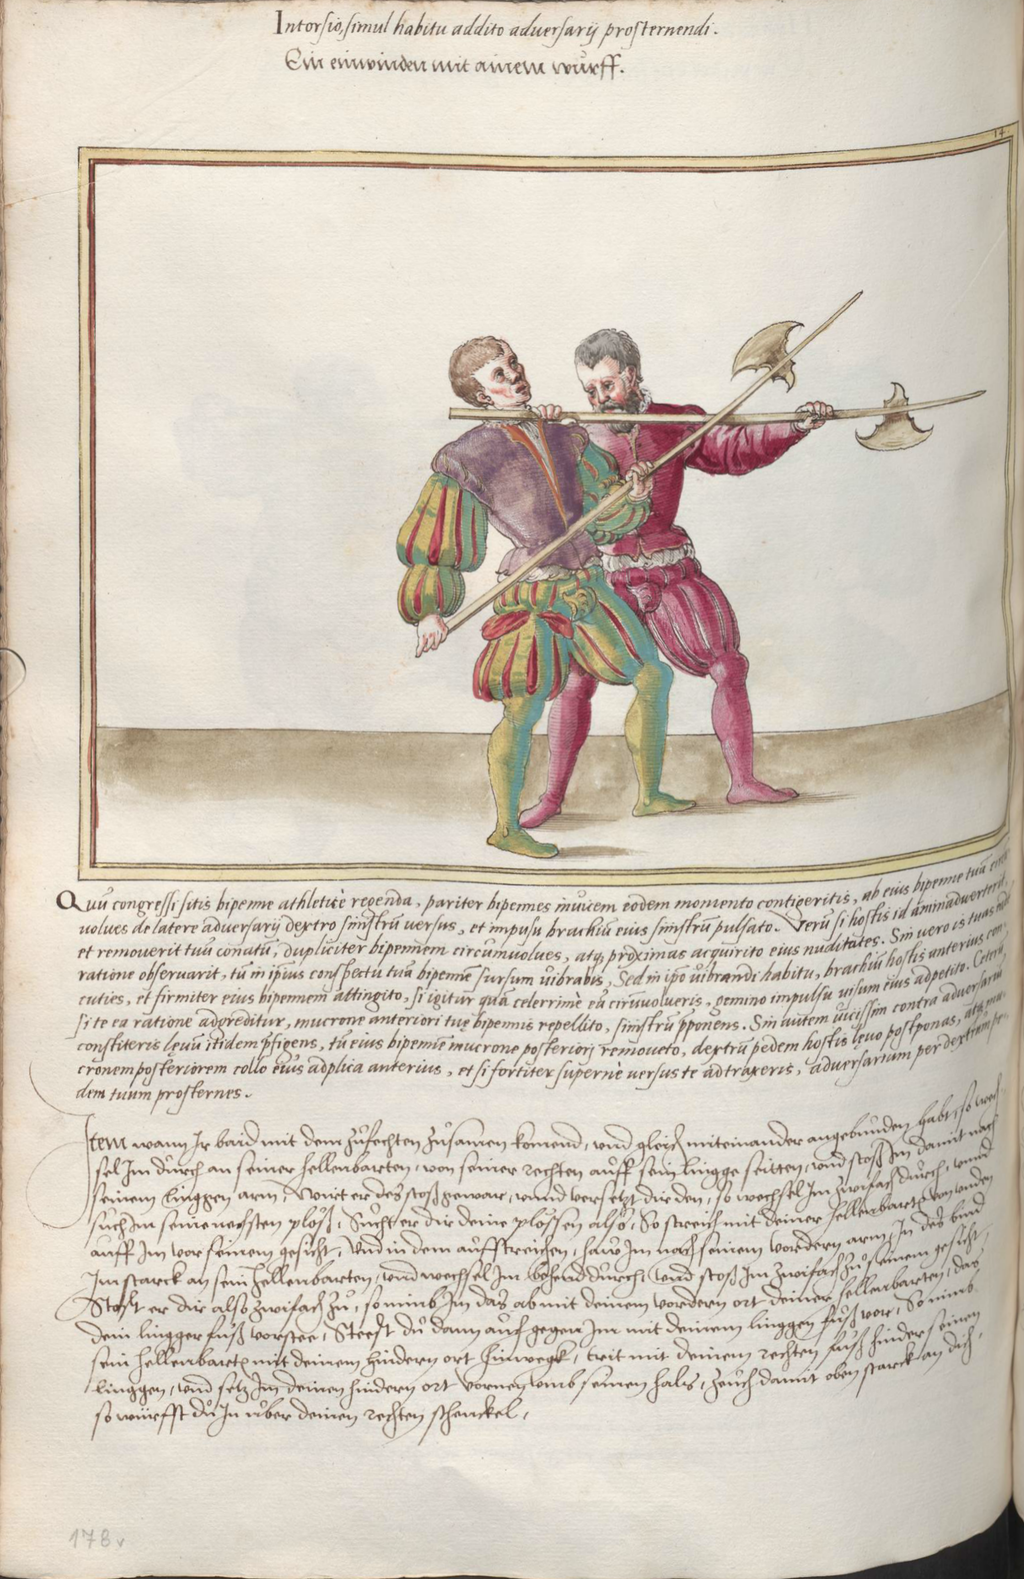 Intorsio, simul habitu addito adversarij prosternendi.
Ein einwinden mit ainem wurff.
14.
Quũ congressi sitis bipenne athleticè regenda, pariter bipennes inuicem eodem momento contigeritis, ab eius bipenne tuã
uolues de latere aduersarij dextro sinistrũ versus, et impulsu brachiũ eius sinistrũ pulsato. Verũ si hostis id animaduerterit,
et remouerit tuũ conatũ, dupliciter bipennem circumuolues, atq, proximas acquirito eius nuditates. Sin vero is tuas
ratione obseruarit, tũ in ipius conspectu tuã bipennẽ sursum uibrabis, Sed in ipo uibrandi habitu, brachiũ hostis anterius
cuties, et firmiter eius bipennem attingito, si igitur quã celerrimè eã circũuolueris, gemino impulsu uisum eius adpetito. Ceterũ
si te ea ratione adgreditur, mucrone anteriori tuę bipennis repellito, sinistrũ pponens. Sin autem uicissim contra aduersariũ
constiteris lęuũ itidem pfigens, tũ eius bipennẽ mucrone posteriori remoueto, dextrũ pedem hostis lęuo postponas, atq mu
cronem posteriorem collo eius adplica anterius, et si fortiter supernè versus te adtraxeris, aduersarium per dextrum pe
dem tuum prosternes.
Item wann Ir baid mit dem zufechten zusamen komend, und gleich miteinander angebunden habt, so wech
sel Im durch an seiner hellenbarten, von seiner rechten auff sein lingge seitten, und stoß Im damit nach
seinem linggen arm, Wirt er des stoß gewar, unnd versetzt dir den, so wechsel Im zwifach durch, unnd
such Im seine nechsten plöß, Sucht er dir deine plossen also, So streich mit deiner hellenbarten von unden
auff Im vor seinem gesicht, Und in dem auffstreichen, haw Im nach seinem vordern arm, In des bind
Im starck an sein hellenbarten, und wechsel Im behend durch, und stoß Im zwifach zu seinem gesicht,
Stost er dir also zwifach zu, so nimb Im das ab mit deinem vordern ort deiner hellenbarten, das
dein lingger fuß vorstee, Steest du dann auch gegen Im mit deinem linggen fuß vor, So nimb
sein hellenbarten mit deinem hindern ort hinwegk, trit mit deinem rechten fuß hinder seinen
linggen, und setz Im deinen hindern ort vornen umb seinen hals, zeuch damit oben starck an dich,
so würffst du In uber deinen rechten schenckel,
178v